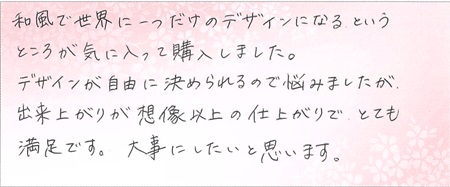 和風で世界に一つだけのデザインになる、という
ところが気に入って購入しました。
デザインが自由に決められるので悩みましたが、
出来上がりが想像以上の仕上がりで、とても
満足です。大事にしたいと思います。